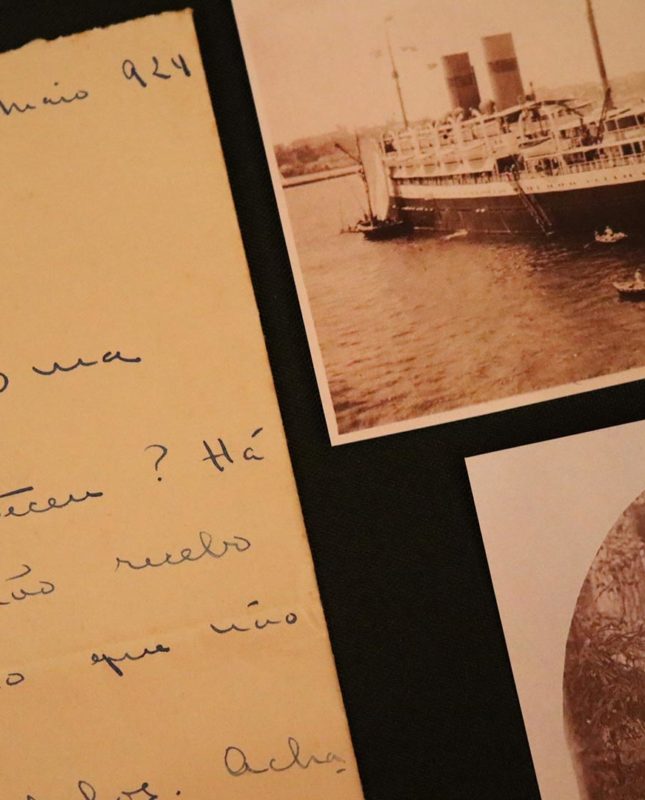 maio 924
ma
? Há
não recebo
o que não
. Acha